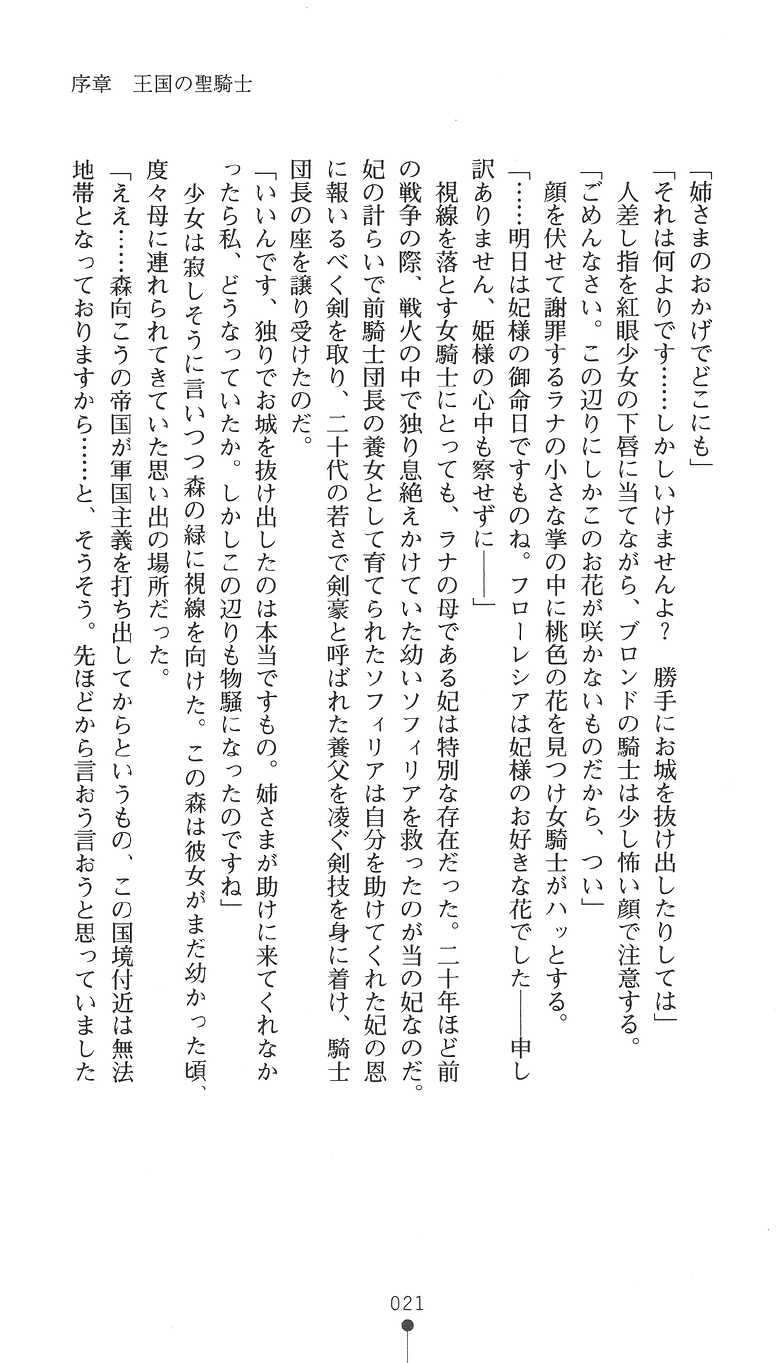 序章　王国の聖騎士
「姉さまのおかげでどこにも」
「それは何よりです……しかしいけませんよ？　勝手にお城を抜け出したりしては」
　人差し指を紅眼少女の下唇に当てながら、ブロンドの騎士は少し怖い顔で注意する。
「ごめんなさい。この辺りにしかこのお花が咲かないものだから、つい」
　顔を伏せて謝罪するラナの小さな掌の中に桃色の花を見つけ女騎士がハッとする。
「……明日は妃様の御命日ですものね。フローレシアは妃様のお好きな花でした――申し
訳ありません、姫様の心中も察せずに――」
　視線を落とす女騎士にとっても、ラナの母である妃は特別な存在だった。二十年ほど前
の戦争の際、戦火の中で独り息絶えかけていた幼いソフィリアを救ったのが当の妃なのだ。
妃の計らいで前騎士団長の養女として育てられたソフィリアは自分を助けてくれた妃の恩
に報いるべく剣を取り、二十代の若さで剣豪と呼ばれた養父を凌ぐ剣技を身に着け、騎士
団長の座を譲り受けたのだ。
「いいんです、独りでお城を抜け出したのは本当ですもの。姉さまが助けに来てくれなか
ったら私、どうなっていたか。しかしこの辺りも物騒になったのですね」
　少女は寂しそうに言いつつ森の緑に視線を向けた。この森は彼女がまだ幼かった頃、
度々母に連れられてきていた思い出の場所だった。
「ええ……森向こうの帝国が軍国主義を打ち出してからというもの、この国境付近は無法
地帯となっておりますから……と、そうそう。先ほどから言おう言おうと思っていました
021